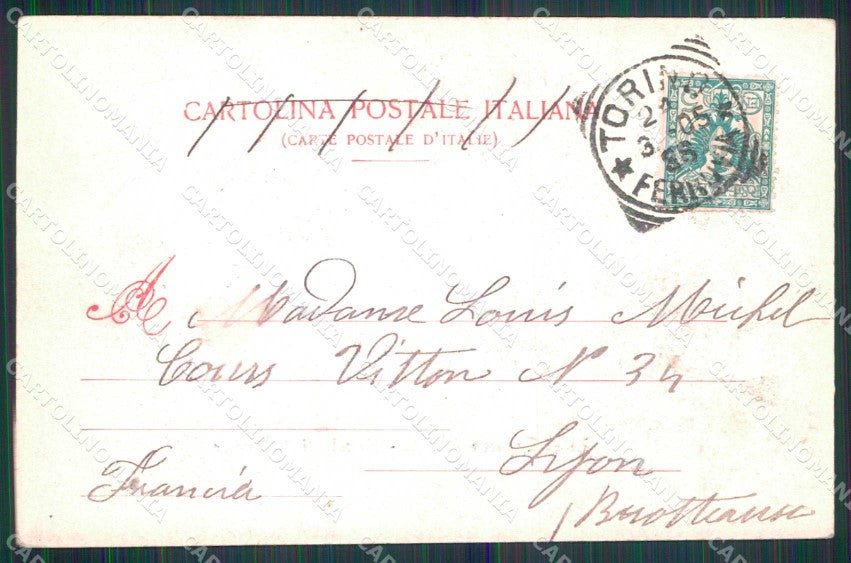 CARTOLINA POSTALE ITALIANA
(CARTE POSTALE D'ITALIE)
TORINO
2
3 05
FERROVIA
A Madame Louis Michel
Cours Vitton N 34
Lyon
Francia
Brotteaux
CARTOLINOMANIA